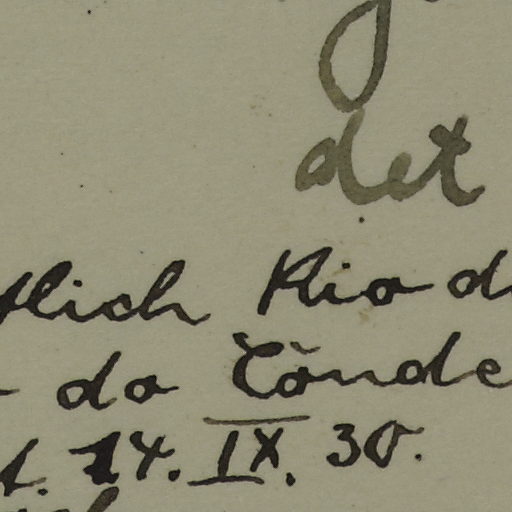 det
tlich Rio d
do Conde
t. 14. IX. 30.